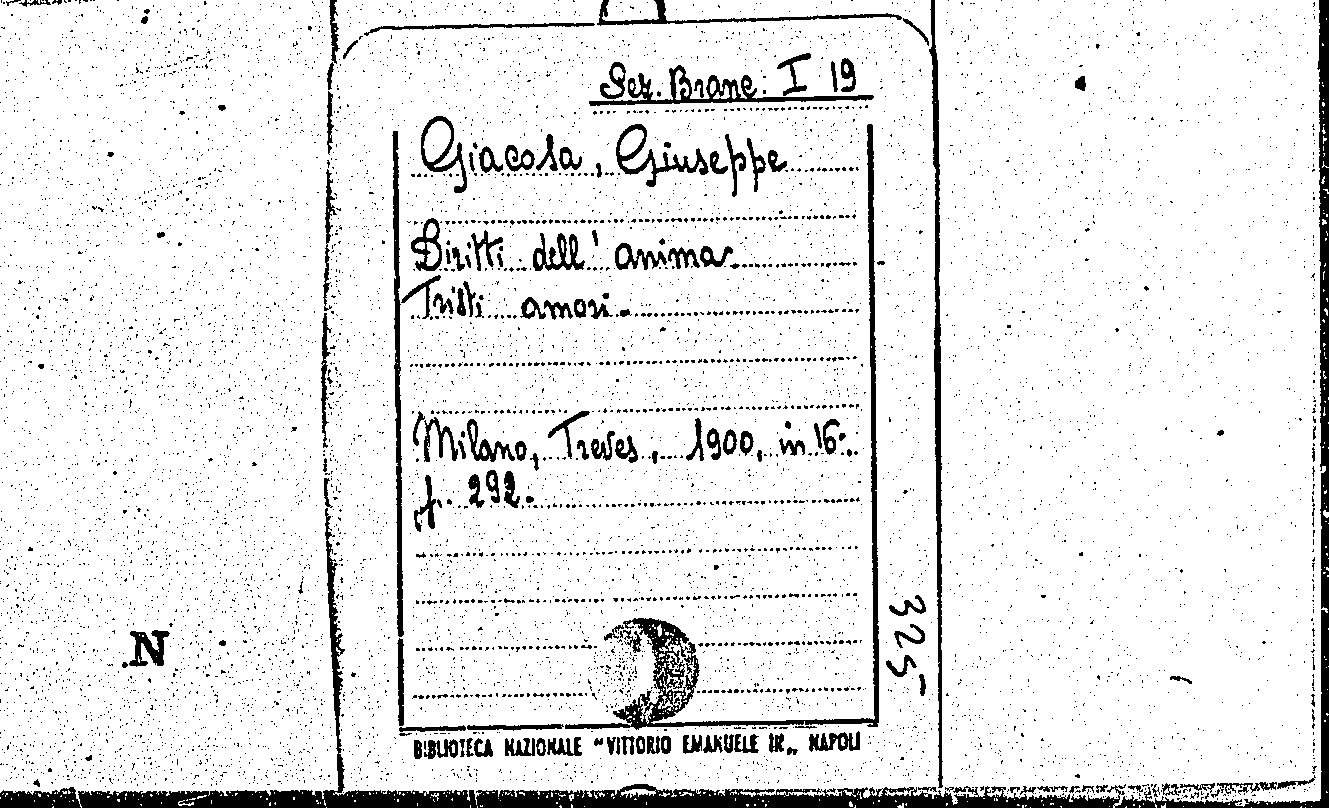 Sez. Branc. I 19
Giacosa, Giuseppe
Diritti dell'anima.
Tristi amori.
Milano, Treves, 1900, in 16°.
p. 292.
325
N
BIBLIOTECA NAZIONALE "VITTORIO EMANUELE III„ NAPOLI